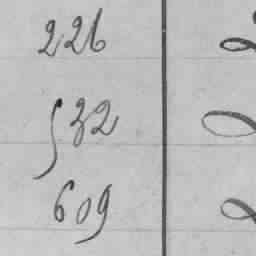 226
532
609